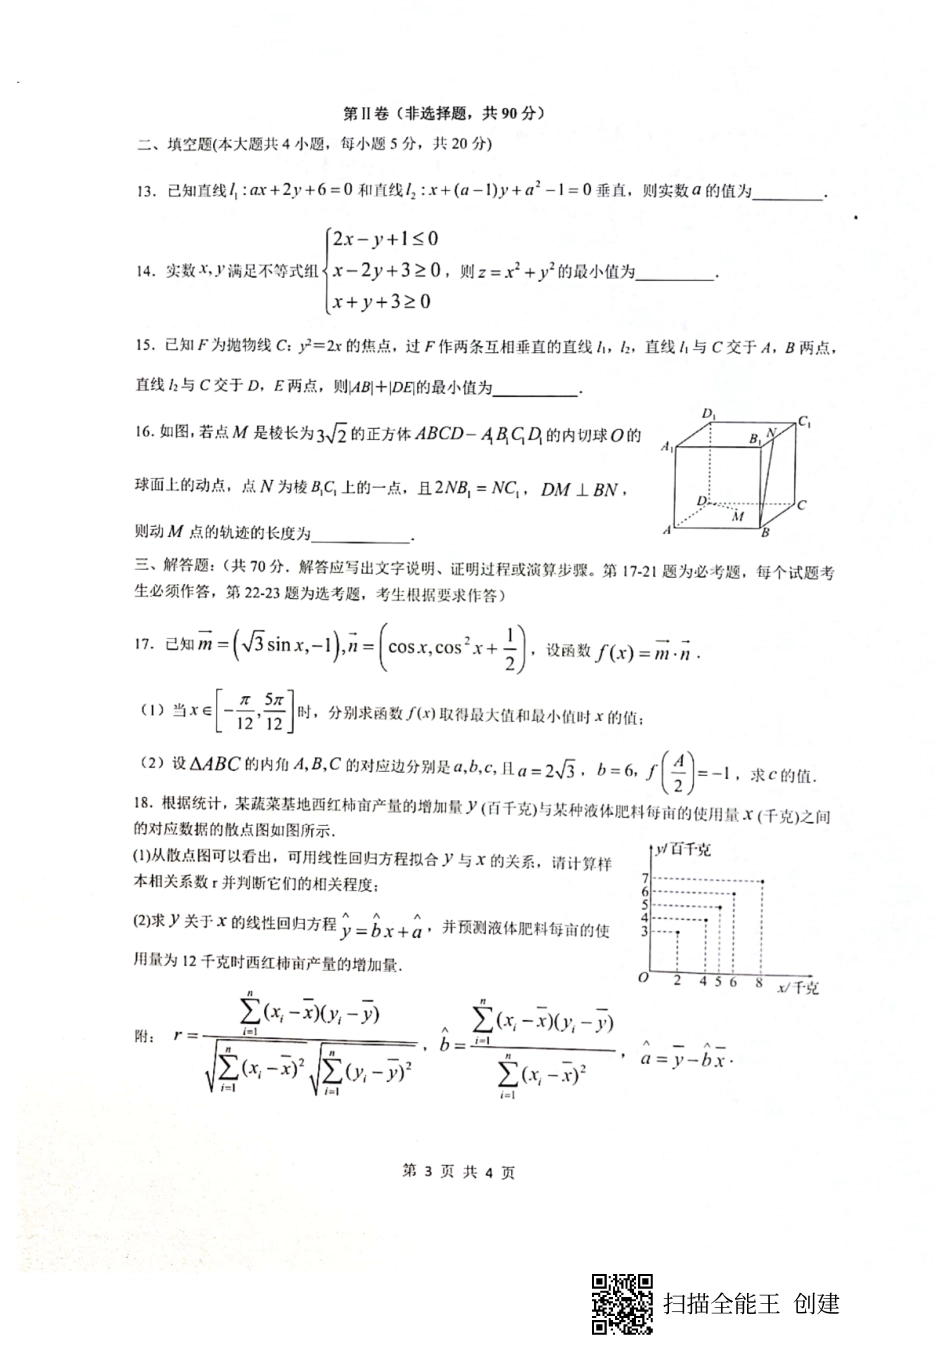 第Ⅱ卷（非选择题，共90分）
二、填空题(本大题共4小题，每小题5分，共20分)
13．已知直线l₁：ax+2y+6=0和直线l₂：x+(a−1)y+a²−1=0垂直，则实数a的值为________．
14．实数x,y满足不等式组{2x−y+1≤0
x−2y+3≥0，则z=x²+y²的最小值为________．
x+y+3≥0
15．已知F为抛物线C：y²=2x的焦点，过F作两条互相垂直的直线l₁，l₂，直线l₁与C交于A，B两点，
直线l₂与C交于D，E两点，则|AB|+|DE|的最小值为________．
16．如图，若点M是棱长为3√2的正方体ABCD−A₁B₁C₁D₁的内切球O的
球面上的动点，点N为棱B₁C₁上的一点，且2NB₁=NC₁，DM⊥BN，
则动M点的轨迹的长度为________．
D₁
C₁
A₁
B₁
N
D
C
M
A
B
三、解答题：（共70分．解答应写出文字说明、证明过程或演算步骤。第17-21题为必考题，每个试题考
生必须作答，第22-23题为选考题，考生根据要求作答）
17．已知m⃗=(√3sin x,−1),n⃗=(cos x,cos²x+1/2)，设函数f(x)=m⃗·n⃗．
（1）当x∈[−π/12,5π/12]时，分别求函数f(x)取得最大值和最小值时x的值；
（2）设△ABC的内角A,B,C的对应边分别是a,b,c,且a=2√3，b=6，f(A/2)=−1，求c的值．
18．根据统计，某蔬菜基地西红柿亩产量的增加量y(百千克)与某种液体肥料每亩的使用量x(千克)之间
的对应数据的散点图如图所示．
(1)从散点图可以看出，可用线性回归方程拟合y与x的关系，请计算样
本相关系数r并判断它们的相关程度；
(2)求y关于x的线性回归方程ŷ=b̂x+â，并预测液体肥料每亩的使
用量为12千克时西红柿亩产量的增加量．
y/百千克
7
6
5
4
3
O 2 4 5 6 8 x/千克
附：r=∑ⁿᵢ₌₁(xᵢ−x̄)(yᵢ−ȳ)/(√∑ⁿᵢ₌₁(xᵢ−x̄)²√∑ⁿᵢ₌₁(yᵢ−ȳ)²)，b̂=∑ⁿᵢ₌₁(xᵢ−x̄)(yᵢ−ȳ)/∑ⁿᵢ₌₁(xᵢ−x̄)²，â=ȳ−b̂x̄．
第 3 页 共 4 页
扫描全能王 创建